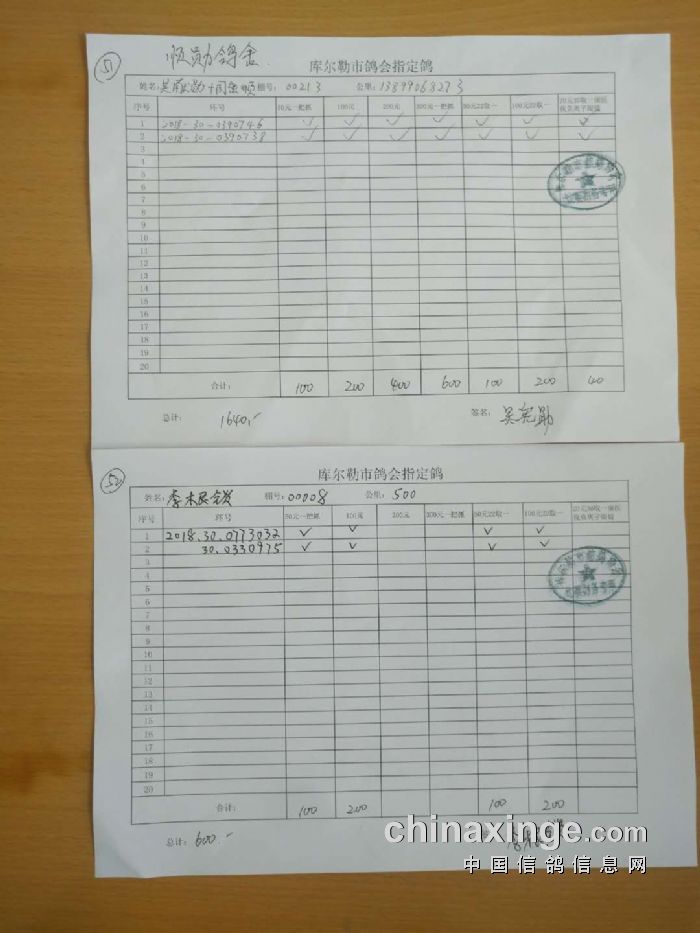 51
顺勋鸽舍
库尔勒市鸽会指定鸽
姓名: 棚号: 00213 公里: 13899068273
序号 环号 50元一把抓 100元 200元 300元一把抓 50元22取一 100元22取一
1 2018-30-0390746 ✓ ✓ ✓ ✓ ✓ ✓ ✓
2 2018-30-0390738 ✓ ✓ ✓ ✓ ✓ ✓ ✓
3
4
5
6
7
8
9
10
11
12
13
14
15
16
17
18
19
20
合计: 100 200 400 600 100 200 40
总计: 1640.- 签名: 吴宪勋
52
库尔勒市鸽会指定鸽
姓名: 棚号: 00008 公里: 500
序号 环号 50元一把抓 100元 200元 300元一把抓 50元22取一 100元22取一
1 2018.30.0773032 ✓ ✓ ✓ ✓
2 30.0330975 ✓ ✓ ✓ ✓
3
4
5
6
7
8
9
10
11
12
13
14
15
16
17
18
19
20
合计: 100 200 100 200
总计: 600.-
chinaxinge.com
中国信鸽信息网